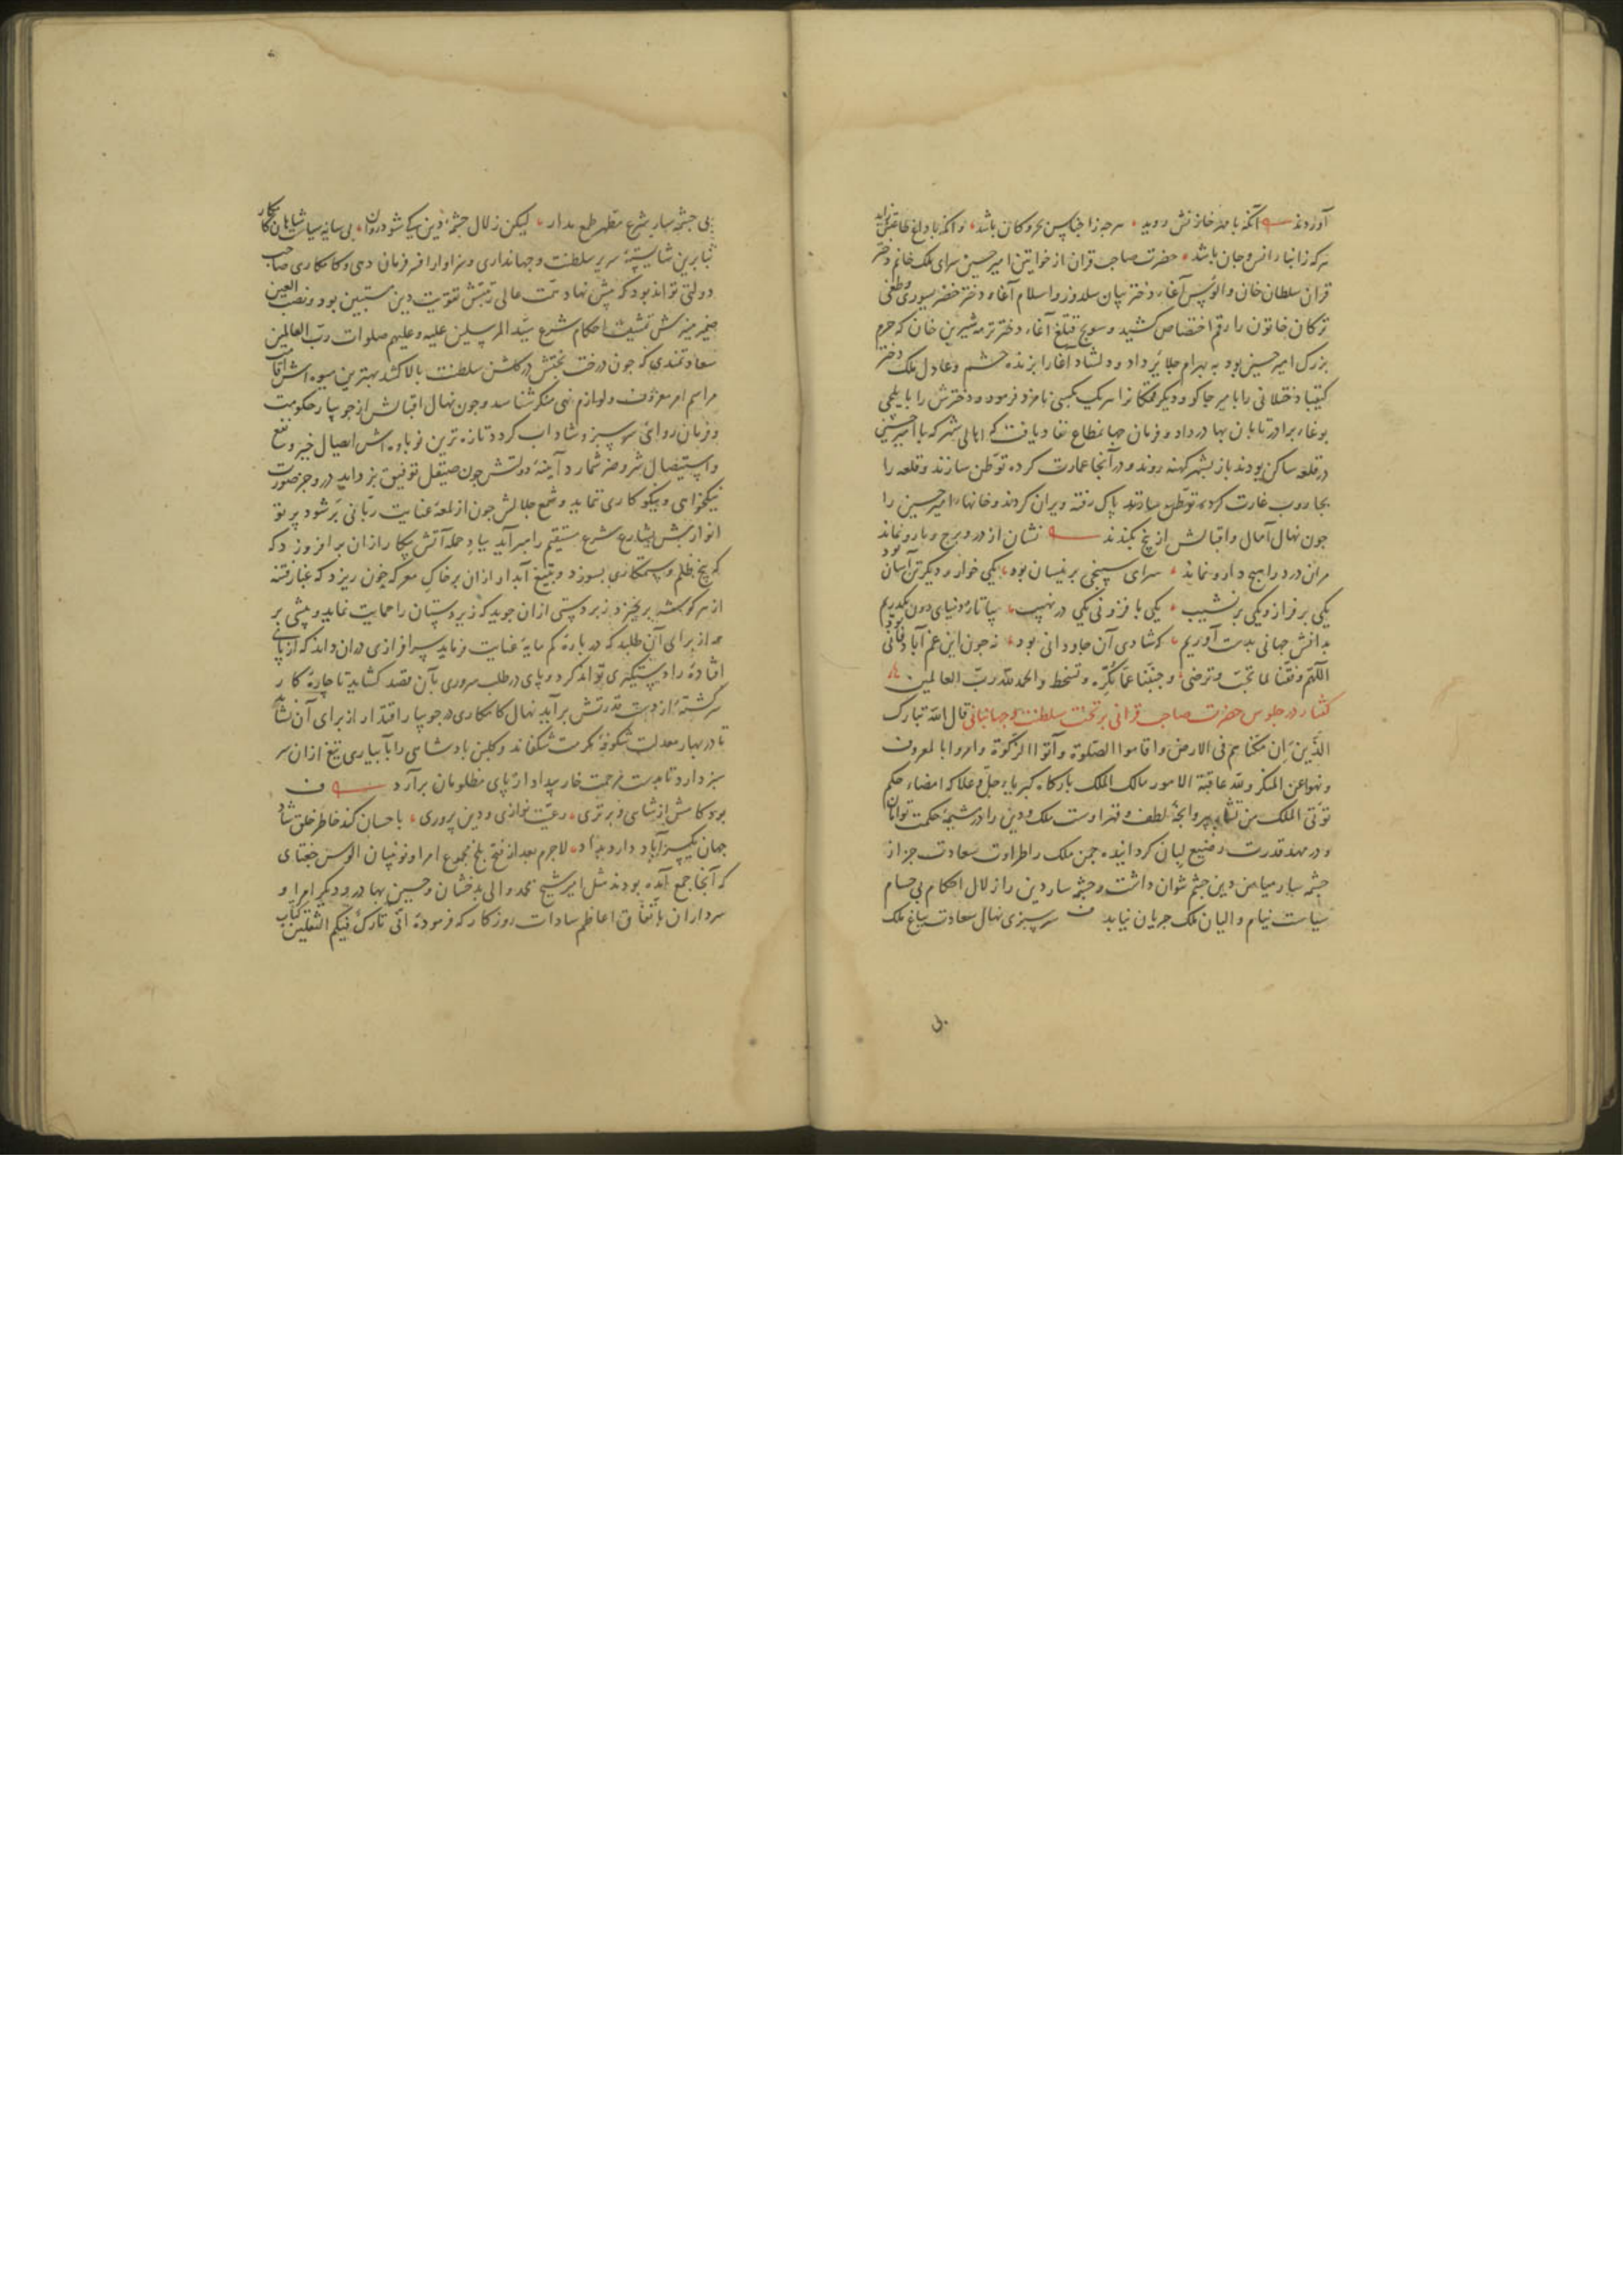 آوردند آنکه با مهر خازنش روید سرجه ز اجناس بحر و کان باشد وانکه با داغ طاعتش زاید
سرکه ز انبار انس و جان باشد حضرت صاحب قران از خواتین امیر حسین سرای ملک خانم دختر
قزان سلطان خان و الوس آغاء دختر بیان سلدوز و اسلام آغاء دختر خضر یسوری و طغی
ترکان خاتون را رقم اختصاص کشید و سونج قتلغ آغاء دختر ترمه شیرین خان که حرم
بزرک امیر حسین بود به بهرام جلایر داد و دلشاد آغا را بزنده حشم و عادل ملک دختر
کیقباد ختلانی را بامیر جاکو و دیکر متعلقانرا سریک بکسی نامزد فرمود و دخترش را بایلجی
بوغاء برادر تابان بهادر داد و فرمان جهانمطاع نفاد یافت که اهالی شهر که با امیر حسین
در قلعه ساکن بودند باز بشهر کهنه روند و در آنجا عمارت کرده توطن سازند و قلعه را
بجاروب غارت پاک رفته ویران کردند و خانهاء امیر حسین را
جون نهال آمال و اقبالش از بیخ بکندند نشان از در و برج و بارو نماند
مران درد را هیج دارو نماند سرای سپنجی برینسان بود یکی خوار و دیکر تن آسان بود
یکی بر فراز و یکی بر نشیب یکی با فزونی یکی در نهیب بیا تا ز دنیای دون بکذریم
بدانش جهانی بدست آوریم که شادی آن جاودانی بود نه جون این غم آباد فانی بود
اللهم وفقنا لما تحب و ترضی و جنبنا عما تکره و تسخط والحمد لله رب العالمین
کفتار در جلوس حضرت صاحب قرانی بر تخت سلطنت و جهانبانی قال الله تبارک
الذین ان مکناهم فی الارض واقاموا الصلوة وآتوا الزکوة وامروا بالمعروف
ونهوا عن المنکر ولله عاقبة الامور مالک الملک بارکاه کبریاء جل و علا که امضاء حکم
تؤتی الملک من تشاء لطف و قهر اوست ملک و دین را در مشیمه حکمت توامان
و در مهد قدرت رضیع لبان کردانیده جمن ملک را طراوت سعادت جز از
جشمه سار میامن دین جشم نتوان داشت و جشمه سار دین را زلال احکام بی حسام
سیاست نیام والیان ملک جریان نیابد سرسبزی نهال سعادت بباغ ملک
بی جشمه سار شرع مطهر طمع مدار لیکن زلال جشمه دین کی شود روان بی سایه سیاست شاهان کامکار
بنابرین شایسته سریر سلطنت و جهانداری و سزاوار افسر فرمان دهی و کامکاری صاحب
دولتی تواند بود که پیش نهاد همت عالی رتبتش تقویت دین مستبین بود و نصب العین
ضمیر منیرش تمشیت احکام شرع سید المرسلین علیه وعلیهم صلوات رب العالمین
سعادتمندی که جون درخت بختش در کلشن سلطنت بالا کشد بهترین میوه اش اقامت
مراسم امر معروف و لوازم نهی منکر شناسد و جون نهال اقبالش از جویبار حکومت
و فرمان روائی سرسبز و شاداب کردد تازه ترین نوباوه اش ایصال خیر و نفع
و استیصال شر و ضر شمارد آینه دولتش جون صیقل توفیق بزداید درو جز صورت
نیکخواهی و نیکوکاری ننماید و شمع جلالش جون از لمعه عنایت ربانی بر شود پرتو
انوارش بشارع شرع مستقیم راهبر آید بباد حمله آتش پیکار از آن برافروزد که
که بیخ ظلم و ستمکاری بسوزد و بتیغ آبدار از آن بر خاک معرکه خون ریزد که غبار فتنه
از سر کوشه برنخیزد زبردستی از آن جوید که زیردستان را حمایت نماید و پیشی بر
همه از برای آن طلبد که در باره کم مایه عنایت فرماید سرافرازی در آن داند که از پای
افتاده را دستکیری تواند کرد و پای در طلب سروری بآن قصد کشاید تا جاره کار
سرکشته از دست قدرتش برآید نهال کامکاری در جویبار اقتدار از برای آن نشاند
تا در بهار معدلت شکوفه مکرمت شکفاند و کلبن بادشاهی را بآبیاری تیغ از آن سر
سبز دارد تا بدست مرحمت خار بیداد از پای مظلومان برآرد
بود کامش از شاهی و برتری رعیت نوازی و دین پروری باحسان کند خاطر خلق شاد
جهان یکسر آباد دارد بداد لاجرم بعد از فتح بلخ مجموع امرا و نوینان الوس جغتای
که آنجا جمع آمده بودند مثل امیر شیخ محمد والی بدخشان و حسین بهادر و دیکر امرا و
سرداران باتفاق اعاظم سادات روزکار که فرموده انی تارک فیکم الثقلین کتاب